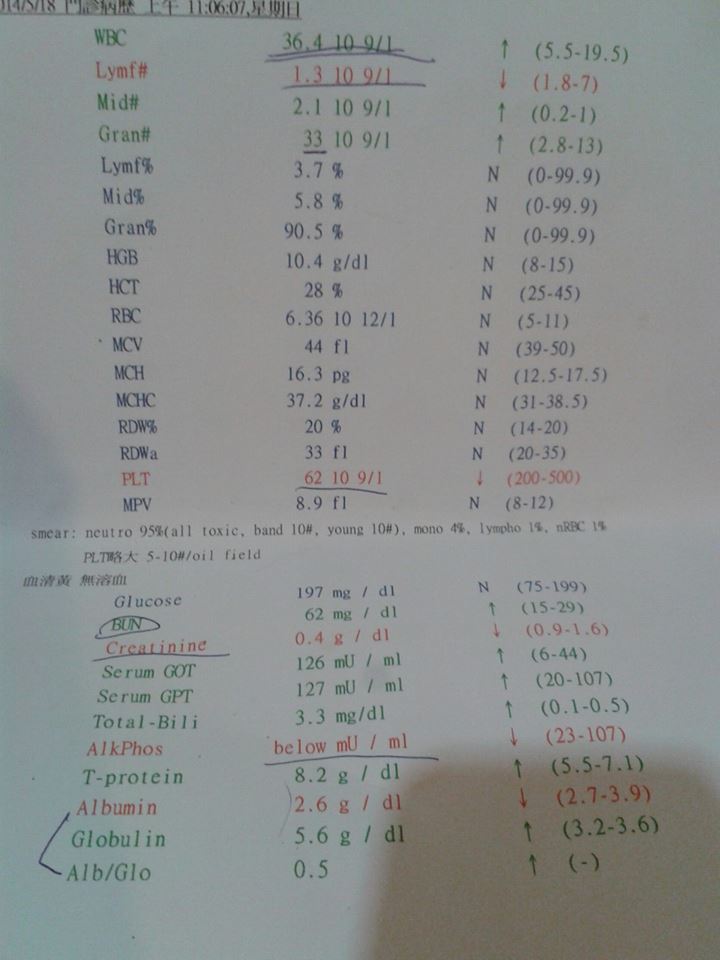 014/5/18 門診病歷 上午 11:06:07,星期日
WBC 36.4 10 9/1 ↑ (5.5-19.5)
Lymf# 1.3 10 9/1 ↓ (1.8-7)
Mid# 2.1 10 9/1 ↑ (0.2-1)
Gran# 33 10 9/1 ↑ (2.8-13)
Lymf% 3.7 % N (0-99.9)
Mid% 5.8 % N (0-99.9)
Gran% 90.5 % N (0-99.9)
HGB 10.4 g/dl N (8-15)
HCT 28 % N (25-45)
RBC 6.36 10 12/1 N (5-11)
MCV 44 fl N (39-50)
MCH 16.3 pg N (12.5-17.5)
MCHC 37.2 g/dl N (31-38.5)
RDW% 20 % N (14-20)
RDWa 33 fl N (20-35)
PLT 62 10 9/1 ↓ (200-500)
MPV 8.9 fl N (8-12)
smear: neutro 95%(all toxic, band 10#, young 10#), mono 4%, lympho 1%, nRBC 1%
PLT略大 5-10#/oil field
血清黃 無溶血
Glucose 197 mg / dl N (75-199)
BUN 62 mg / dl ↑ (15-29)
Creatinine 0.4 g / dl ↓ (0.9-1.6)
Serum GOT 126 mU / ml ↑ (6-44)
Serum GPT 127 mU / ml ↑ (20-107)
Total-Bili 3.3 mg/dl ↑ (0.1-0.5)
AlkPhos below mU / ml ↓ (23-107)
T-protein 8.2 g / dl ↑ (5.5-7.1)
Albumin 2.6 g / dl ↓ (2.7-3.9)
Globulin 5.6 g / dl ↑ (3.2-3.6)
Alb/Glo 0.5 ↑ (-)